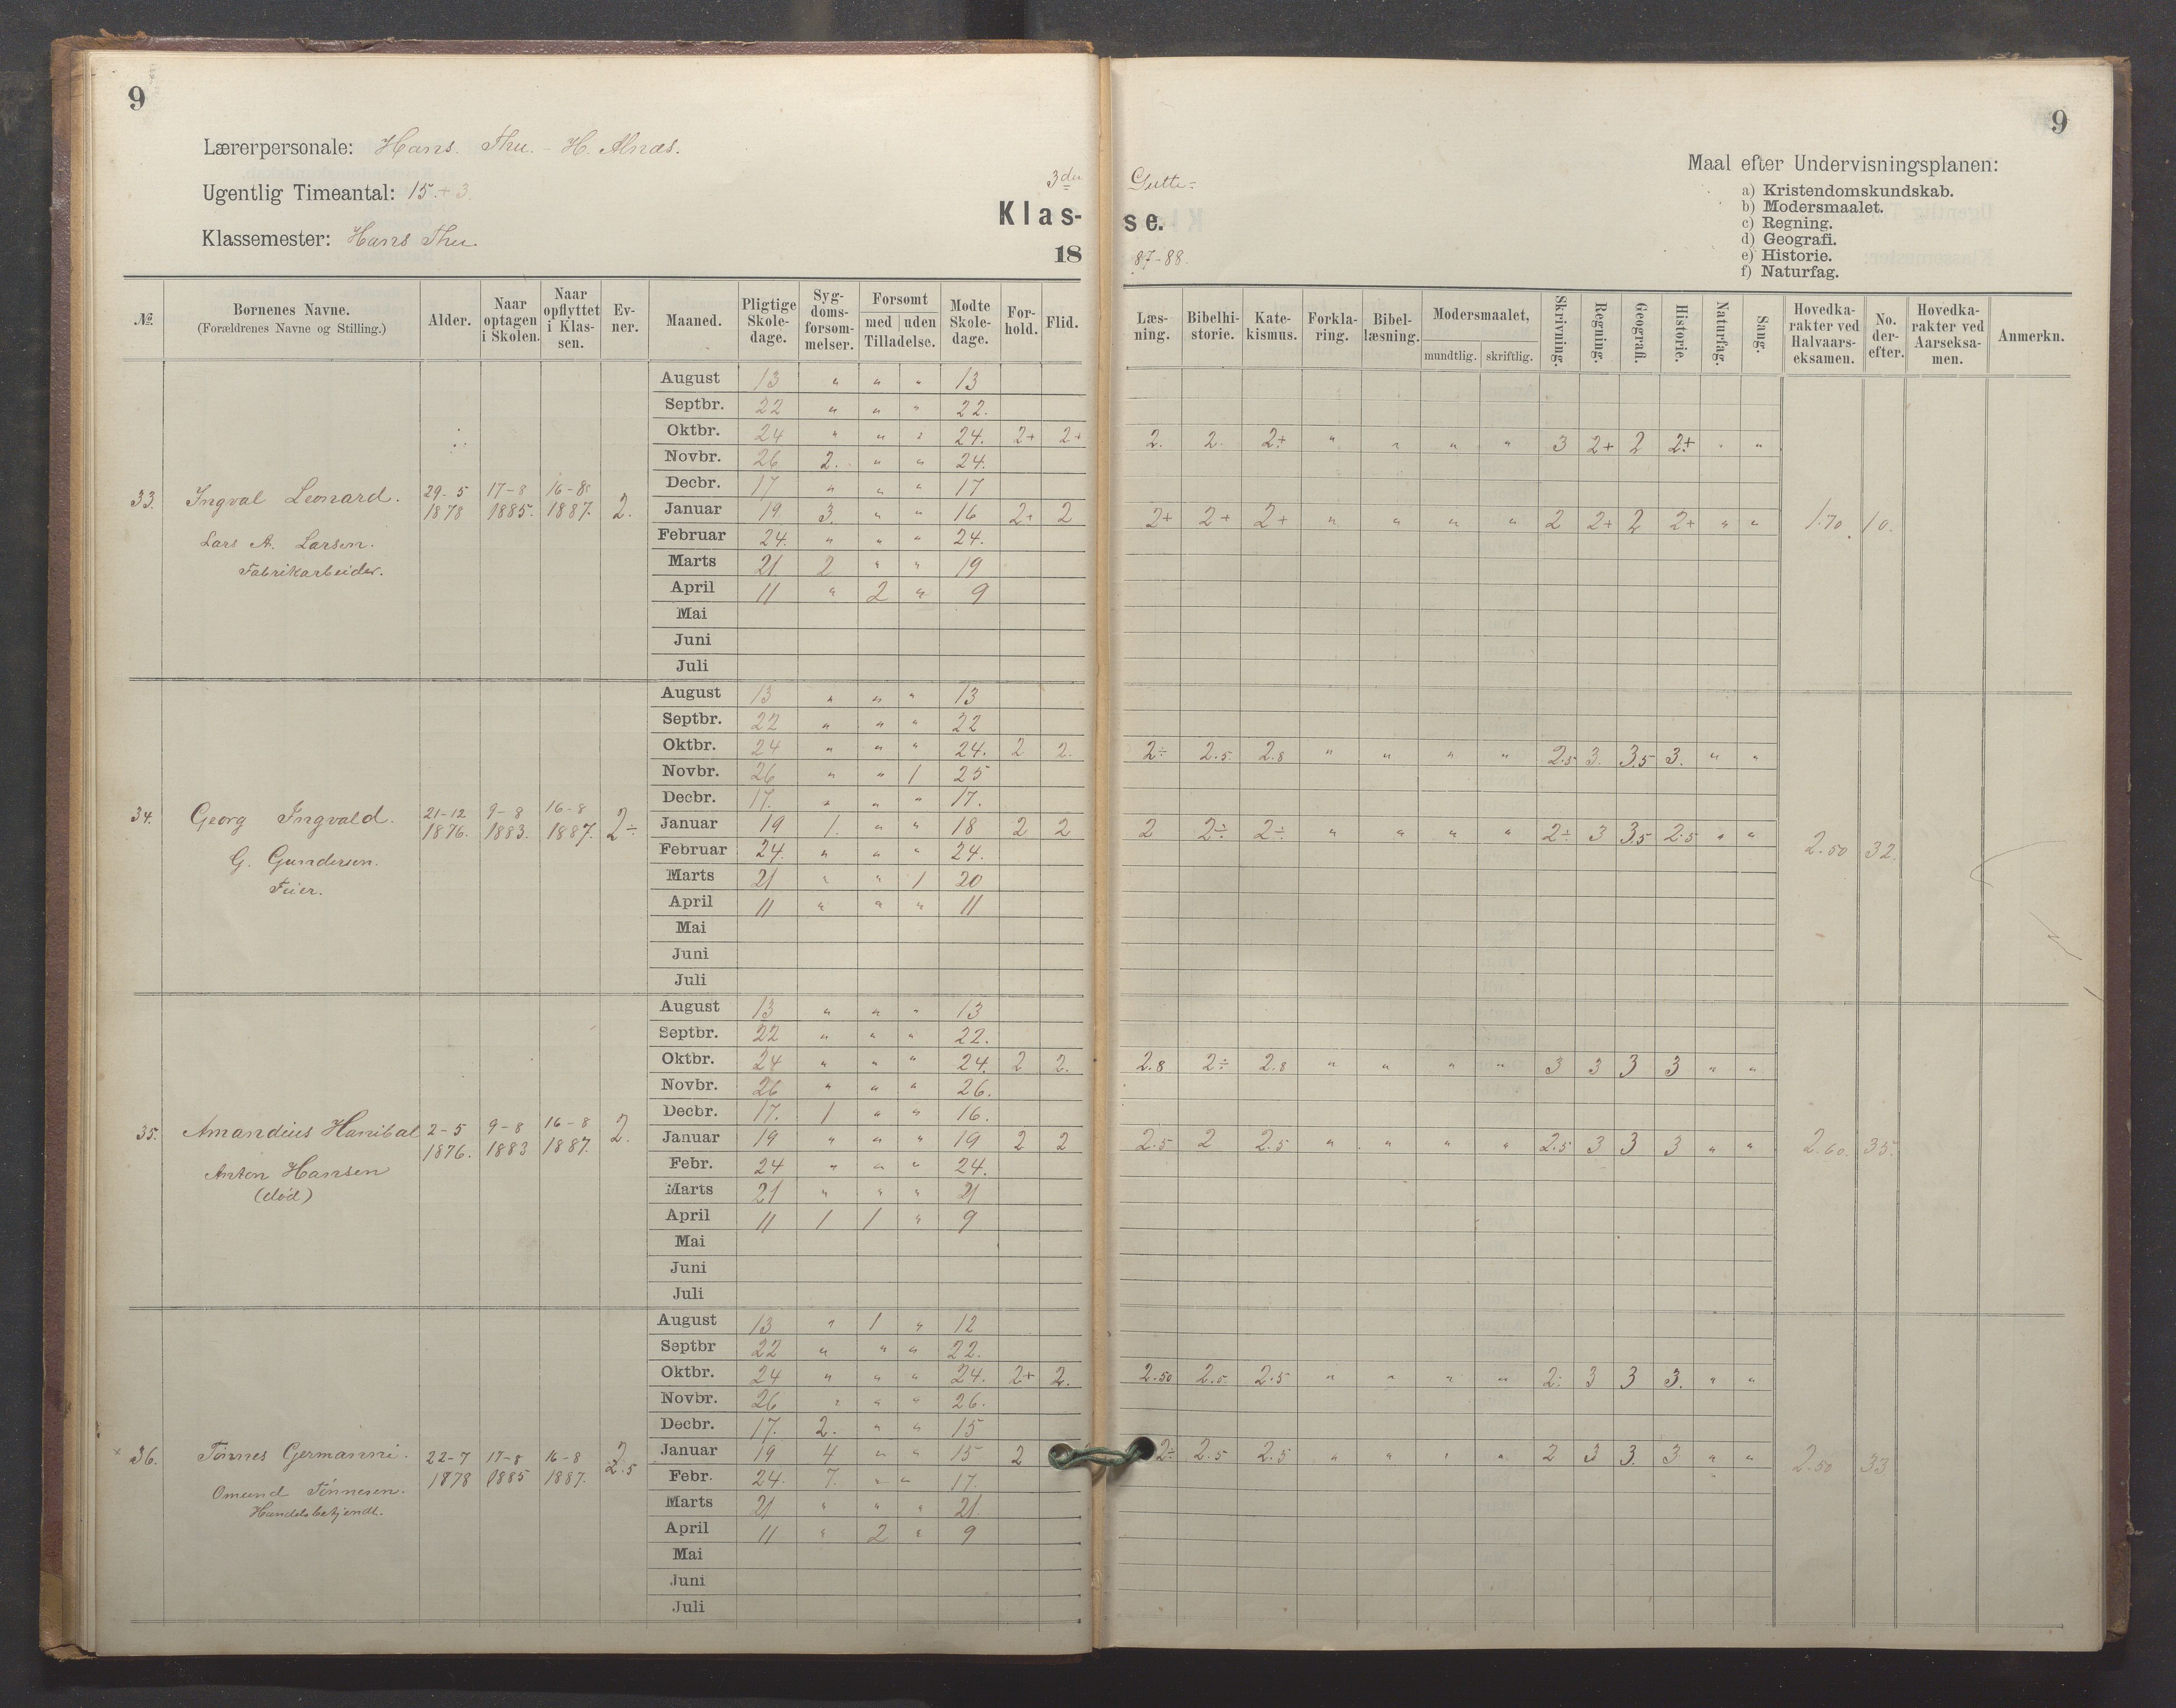 9
9
Lærerpersonale: Hans. Thu. - H. Alnæs.
Ugentlig Timeantal: 15. + 3.
Klassemester: Hans Thu.
3die Gutte-
Klasse.
1887-88.
Maal efter Undervisningsplanen:
a) Kristendomskundskab.
b) Modersmaalet.
c) Regning.
d) Geografi.
e) Historie.
f) Naturfag.
№ | Børnenes Navne. (Forældrenes Navne og Stilling.) | Alder. | Naar optagen i Skolen. | Naar opflyttet i Klassen. | Evner. | Maaned. | Pligtige Skoledage. | Sygdomsforsømmelser. | Forsømt med | uden Tilladelse. | Mødte Skoledage. | Forhold. | Flid. | Læsning. | Bibelhistorie. | Katekismus. | Forklaring. | Bibellæsning. | Modersmaalet, mundtlig. | skriftlig. | Skrivning. | Regning. | Geografi. | Historie. | Naturfag. | Sang. | Hovedkarakter ved Halvaarseksamen. | No. derefter. | Hovedkarakter ved Aarseksamen. | Anmerkn.
33. Ingval Leonard. 29-5 1878 17-8 1885. 16-8 1887. 2.
Lars A. Larsen.
Fabrikarbeider.
August 13 " " " 13
Septbr. 22 " " " 22.
Oktbr. 24 " " " 24. 2+ 2+ 2. 2. 2+ " " " " 3 2+ 2 2+ " "
Novbr. 26 2. " " 24.
Decbr. 17 " " " 17
Januar 19 3. " " 16 2+ 2 2+ 2+ 2+ " " " " 2 2+ 2 2+ " " 1.70 10.
Februar 24. " " " 24.
Marts 21 2 " " 19
April 11 " 2 " 9
Mai
Juni
Juli
34. Georg Ingvald. 21-12 1876. 9-8 1883. 16-8 1887. 2÷
G. Gundersen.
Feier.
August 13 " " " 13
Septbr. 22 " " " 22
Oktbr. 24 " " " 24. 2 2. 2÷ 2.5 2.8 " " " " 2.5 3. 3.5 3. " "
Novbr. 26 " " 1 25
Decbr. 17. " " " 17.
Januar 19 1. " " 18 2 2 2 2÷ 2÷ " " " " 2÷ 3 3.5 2.5 " " 2.50 32.
Februar 24. " " " 24.
Marts 21 " " 1 20
April 11 " " " 11
Mai
Juni
Juli
35. Amandius Hanibal 2-5 1876. 9-8 1883 16-8 1887. 2.
Anton Hansen
(død)
August 13 " " " 13
Septbr. 22 " " " 22.
Oktbr. 24 " " " 24. 2 2. 2.8 2÷ 2.8 " " " " 3 3 3 3 " "
Novbr. 26 " " " 26.
Decbr. 17. 1 " " 16.
Januar 19 " " " 19 2 2 2.5 2 2.5 " " " " 2.5 3 3 3 " " 2.60. 35.
Febr. 24 " " " 24.
Marts 21 " " " 21
April 11 1 1 " 9
Mai
Juni
Juli
36. Tønnes Germanni. 22-7 1878 17-8 1885 16-8 1887. 2 2.5
Omund Tønnesen.
Handelsbetjendt.
August 13 " 1 " 12
Septbr 22 " " " 22.
Oktbr. 24 " " " 24. 2+ 2. 2.50 2.5 2.5 " " " " 2÷ 3 3 3. " "
Novbr. 26 " " " 26.
Decbr. 17. 2. " " 15
Januar 19 4 " " 15 2 2÷ 2.5 2.5 " " " " 2 3 3. 3 " " 2.50 33
Febr. 24. 7. " " 17.
Marts 21 " " " 21.
April 11 " 2 " 9
Mai
Juni
Juli